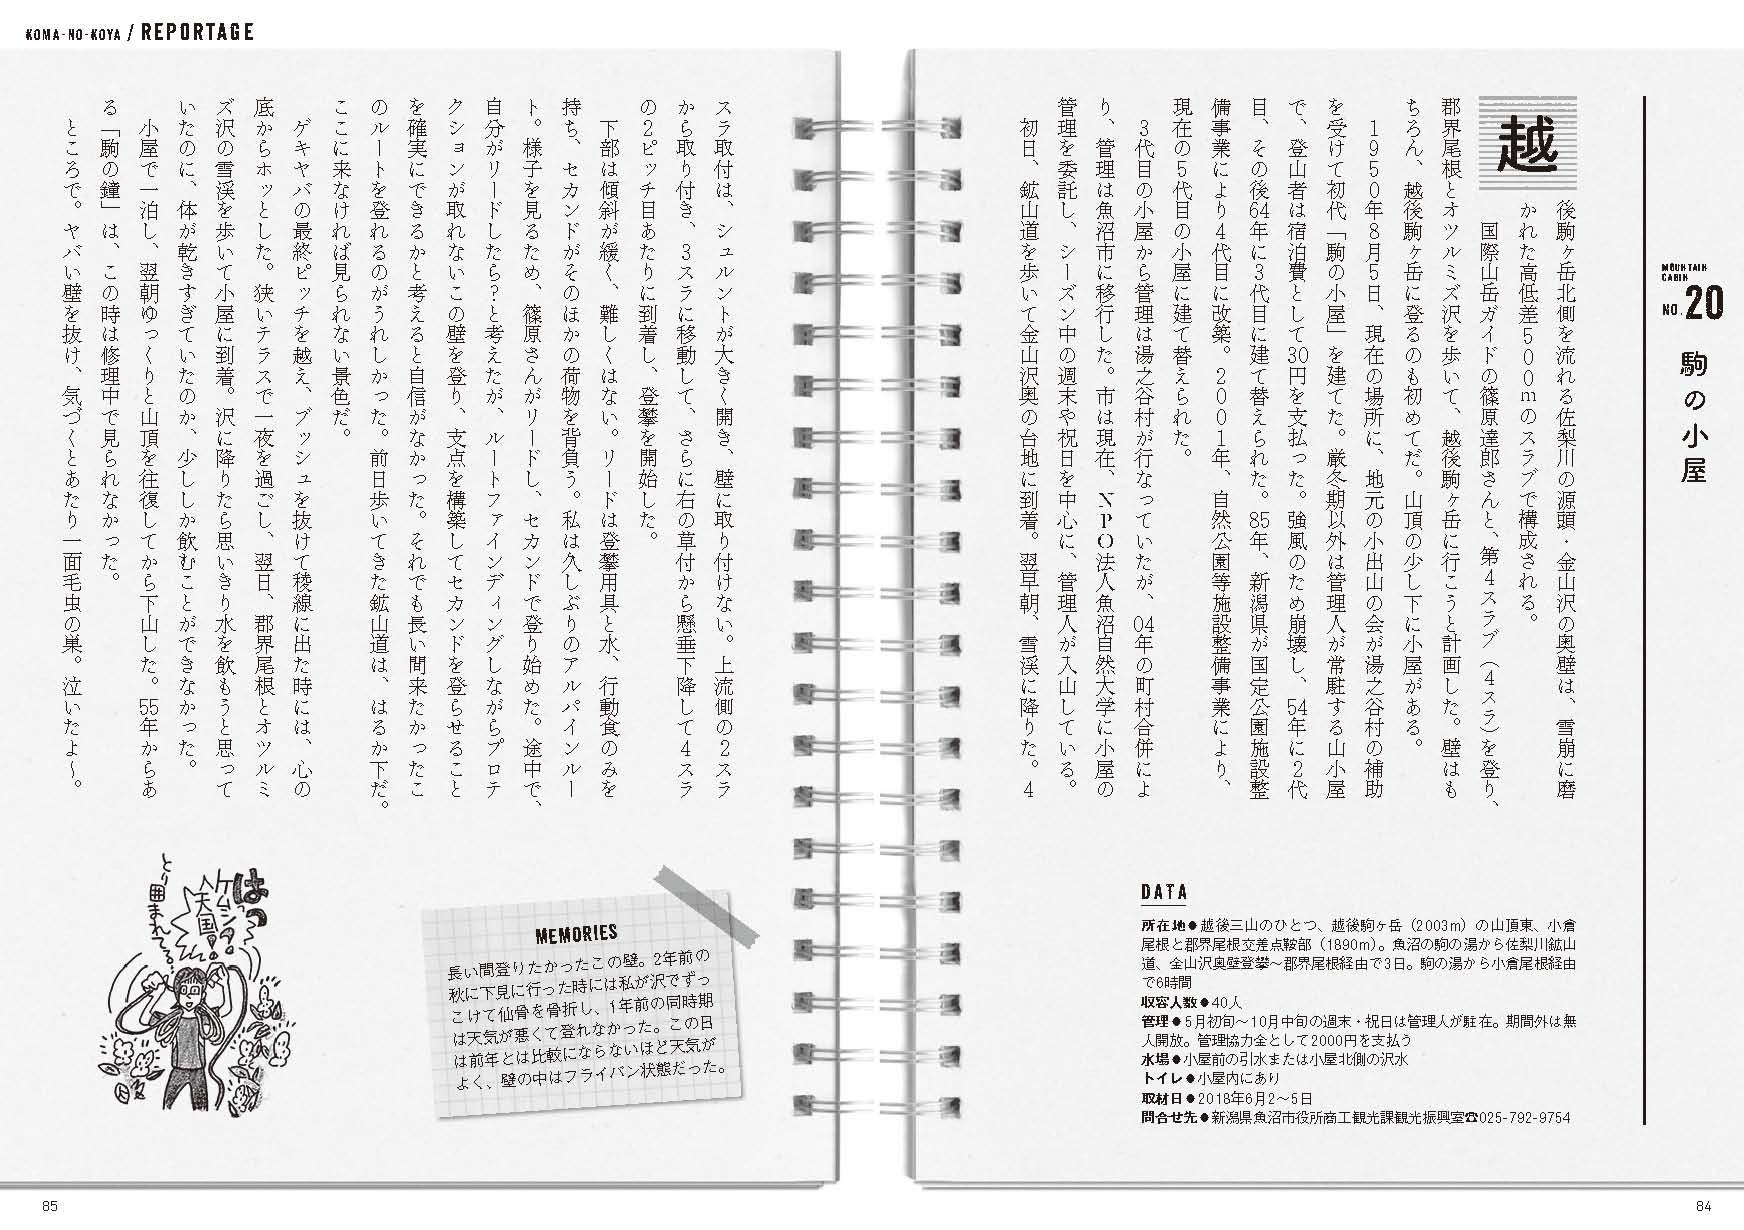 KOMA-NO-KOYA / REPORTAGE
MOUNTAIN
CABIN
NO.20
駒の小屋
越
後駒ヶ岳北側を流れる佐梨川の源頭・金山沢の奥壁は、雪崩に磨
かれた高低差500mのスラブで構成される。
国際山岳ガイドの篠原達郎さんと、第4スラブ（4スラ）を登り、
郡界尾根とオツルミズ沢を歩いて、越後駒ヶ岳に行こうと計画した。壁はも
ちろん、越後駒ヶ岳に登るのも初めてだ。山頂の少し下に小屋がある。
1950年8月5日、現在の場所に、地元の小出山の会が湯之谷村の補助
を受けて初代「駒の小屋」を建てた。厳冬期以外は管理人が常駐する山小屋
で、登山者は宿泊費として30円を支払った。強風のため崩壊し、54年に2代
目、その後64年に3代目に建て替えられた。85年、新潟県が国定公園施設整
備事業により4代目に改築。2001年、自然公園等施設整備事業により、
現在の5代目の小屋に建て替えられた。
3代目の小屋から管理は湯之谷村が行なっていたが、04年の町村合併によ
り、管理は魚沼市に移行した。市は現在、NPO法人魚沼自然大学に小屋の
管理を委託し、シーズン中の週末や祝日を中心に、管理人が入山している。
初日、鉱山道を歩いて金山沢奥の台地に到着。翌早朝、雪渓に降りた。4
DATA
所在地●越後三山のひとつ、越後駒ヶ岳（2003m）の山頂東、小倉
尾根と郡界尾根交差点鞍部（1890m）。魚沼の駒の湯から佐梨川鉱山
道、金山沢奥壁登攀～郡界尾根経由で3日。駒の湯から小倉尾根経由
で6時間
収容人数●40人
管理●5月初旬～10月中旬の週末・祝日は管理人が駐在。期間外は無
人開放。管理協力金として2000円を支払う
水場●小屋前の引水または小屋北側の沢水
トイレ●小屋内にあり
取材日●2018年6月2～5日
問合せ先●新潟県魚沼市役所商工観光課観光振興室☎025-792-9754
84
スラ取付は、シュルントが大きく開き、壁に取り付けない。上流側の2スラ
から取り付き、3スラに移動して、さらに右の草付から懸垂下降して4スラ
の2ピッチ目あたりに到着し、登攀を開始した。
下部は傾斜が緩く、難しくはない。リードは登攀用具と水、行動食のみを
持ち、セカンドがそのほかの荷物を背負う。私は久しぶりのアルパインルー
ト。様子を見るため、篠原さんがリードし、セカンドで登り始めた。途中で、
自分がリードしたら？と考えたが、ルートファインディングしながらプロテ
クションが取れないこの壁を登り、支点を構築してセカンドを登らせること
を確実にできるかと考えると自信がなかった。それでも長い間来たかったこ
のルートを登れるのがうれしかった。前日歩いてきた鉱山道は、はるか下だ。
ここに来なければ見られない景色だ。
ゲキヤバの最終ピッチを越え、ブッシュを抜けて稜線に出た時には、心の
底からホッとした。狭いテラスで一夜を過ごし、翌日、郡界尾根とオツルミ
ズ沢の雪渓を歩いて小屋に到着。沢に降りたら思いきり水を飲もうと思って
いたのに、体が乾きすぎていたのか、少ししか飲むことができなかった。
小屋で一泊し、翌朝ゆっくりと山頂を往復してから下山した。55年からあ
る「駒の鐘」は、この時は修理中で見られなかった。
ところで。ヤバい壁を抜け、気づくとあたり一面毛虫の巣。泣いたよ～。
MEMORIES
長い間登りたかったこの壁。2年前の
秋に下見に行った時には私が沢でずっ
こけて仙骨を骨折し、1年前の同時期
は天気が悪くて登れなかった。この日
は前年とは比較にならないほど天気が
よく、壁の中はフライパン状態だった。
はっ
ケムシの
天国!
とり囲まれてる
85